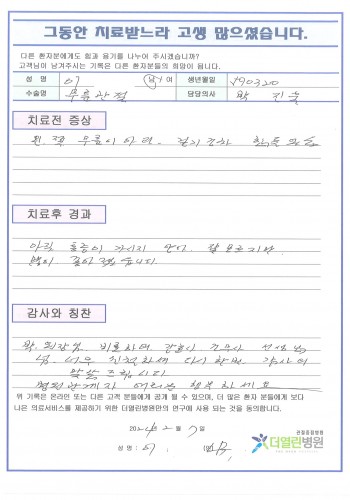 그동안 치료받느라 고생 많으셨습니다.
다른 환자분에게도 힘과 용기를 나누어 주시겠습니까?
고객님이 남겨주시는 기록은 다른 환자분들의 희망이 됩니다.
성 명 이 남 / 여 생년월일 590320
수술명 무릎관절 담당의사 박진승
치료전 증상
왼쪽 무릎이 아파. 걷기조차 힘듦
치료후 경과
아직 통증이 가시지 만
많이 좋아졌습니다.
감사와 칭찬
박. 원장님. 비롯하여 간호사 선생님
너무 친절하세 다시 한번 감사의
말씀 드립니다
위 기록은 온라인 또는 다른 고객 분들에게 공개 될 수 있으며, 더 많은 환자 분들에게 보다
나은 의료서비스를 제공하기 위한 더열린병원만의 연구에 사용 되는 것을 동의합니다.
2024년 2월 7일
성명 : 이
관절중점병원
더열린병원